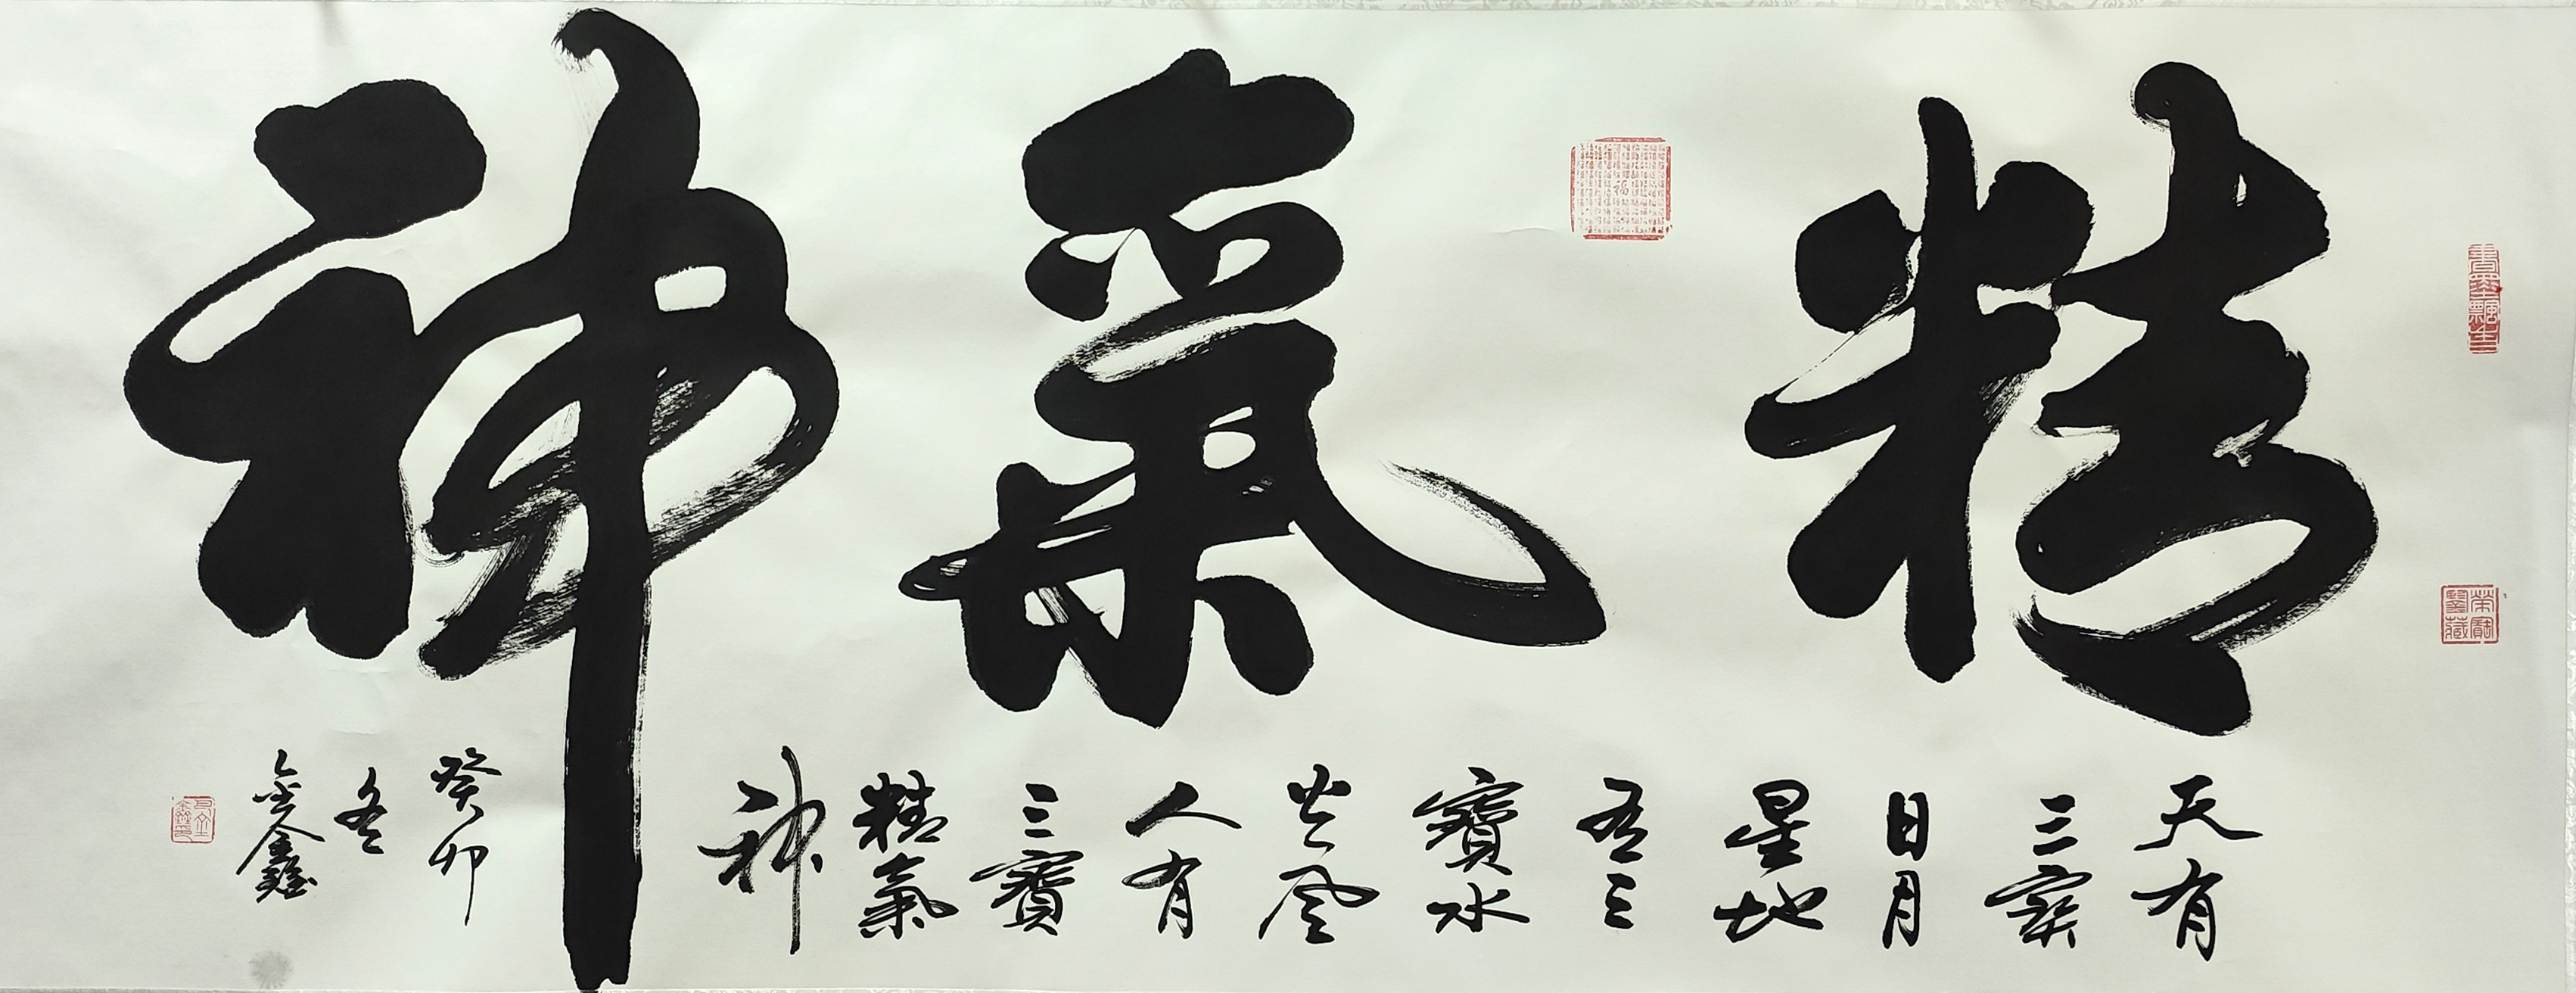 榮寶鑒藏
精氣神
福
天有
三寶
日月
星地
有三
寶水
火風
人有
三寶
精氣
神
癸卯
冬
金鑫